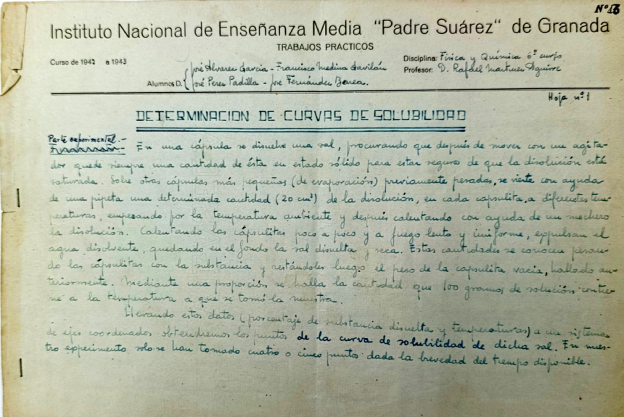 Nº 13
Instituto Nacional de Enseñanza Media "Padre Suárez" de Granada
TRABAJOS PRACTICOS
Curso de 1942 a 1943
Disciplina: Física y Química 6º curso
Profesor: D. Rafael Martínez Aguirre
Alumnos D. José Alvarez García - Francisco Medina Gavilán
José Perez Padilla - José Fernández Barea
Hoja nº 1
DETERMINACION DE CURVAS DE SOLUBILIDAD
Parte experimental.- En una cápsula se disuelve una sal, procurando que después de mover con un agita-
dor quede siempre una cantidad de ésta en estado sólido para estar seguros de que la disolución está
saturada. Sobre otras cápsulas más pequeñas (de evaporación) previamente pesadas, se vierte con ayuda
de una pipeta una determinada cantidad (20 cm³) de la disolución, en cada capsulita, a diferentes tem-
peraturas, empezando por la temperatura ambiente y después calentando con ayuda de un mechero
la disolución. Calentando las cápsulitas poco a poco y a fuego lento y uniforme, expulsan el
agua disolvente, quedando en el fondo la sal disuelta y seca. Estas cantidades se conocen pesan-
do las cápsulitas con la substancia y restándoles luego el peso de la capsulita vacía, hallado an-
teriormente. Mediante una proporción se halla la cantidad que 100 gramos de solución contie-
ne a la temperatura a que se tomó la muestra.
Llevando estos datos (porcentaje de substancia disuelta y temperaturas) a un sistema
de ejes coordenados obtendremos los puntos de la curva de solubilidad de dicha sal. En nues-
tro experimento, solo se han tomado cuatro o cinco puntos dada la brevedad del tiempo disponible.